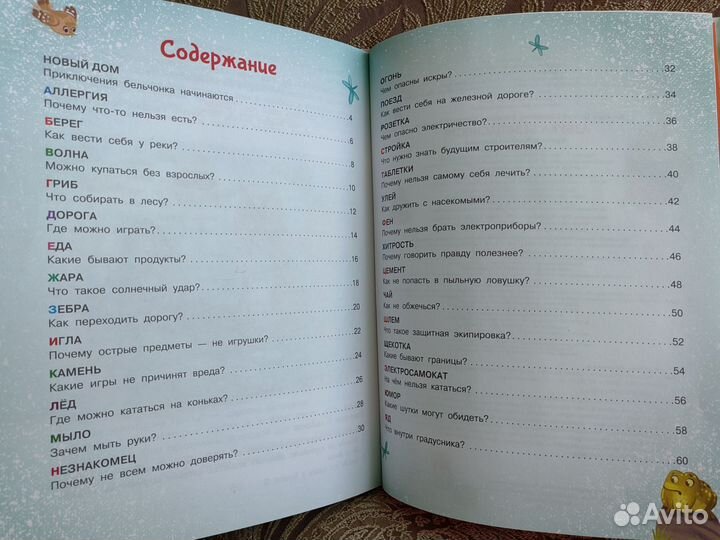 Содержание
НОВЫЙ ДОМ
Приключения бельчонка начинаются 4
АЛЛЕРГИЯ
Почему что-то нельзя есть? 6
БЕРЕГ
Как вести себя у реки? 8
ВОЛНА
Можно купаться без взрослых? 10
ГРИБ
Что собирать в лесу? 12
ДОРОГА
Где можно играть? 14
ЕДА
Какие бывают продукты? 16
ЖАРА
Что такое солнечный удар? 18
ЗЕБРА
Как переходить дорогу? 20
ИГЛА
Почему острые предметы — не игрушки? 22
КАМЕНЬ
Какие игры не причинят вреда? 24
ЛЁД
Где можно кататься на коньках? 26
МЫЛО
Зачем мыть руки? 28
НЕЗНАКОМЕЦ
Почему не всем можно доверять? 30
ОГОНЬ
Чем опасны искры? 32
ПОЕЗД
Как вести себя на железной дороге? 34
РОЗЕТКА
Чем опасно электричество? 36
СТРОЙКА
Что нужно знать будущим строителям? 38
ТАБЛЕТКИ
Почему нельзя самому себя лечить? 40
УЛЕЙ
Как дружить с насекомыми? 42
ФЕН
Почему нельзя брать электроприборы? 44
ХИТРОСТЬ
Почему говорить правду полезнее? 46
ЦЕМЕНТ
Как не попасть в пыльную ловушку? 48
ЧАЙ
Как не обжечься? 50
ШЛЕМ
Что такое защитная экипировка? 52
ЩЕКОТКА
Какие бывают границы? 54
ЭЛЕКТРОСАМОКАТ
На чём нельзя кататься? 56
ЮМОР
Какие шутки могут обидеть? 58
ЯД
Что внутри градусника? 60
Avito